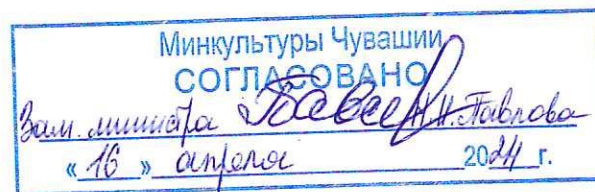 Минкультуры Чувашии
СОГЛАСОВАНО
Зам. министра Н.Н. Павлова
« 16 » апреля 2024 г.